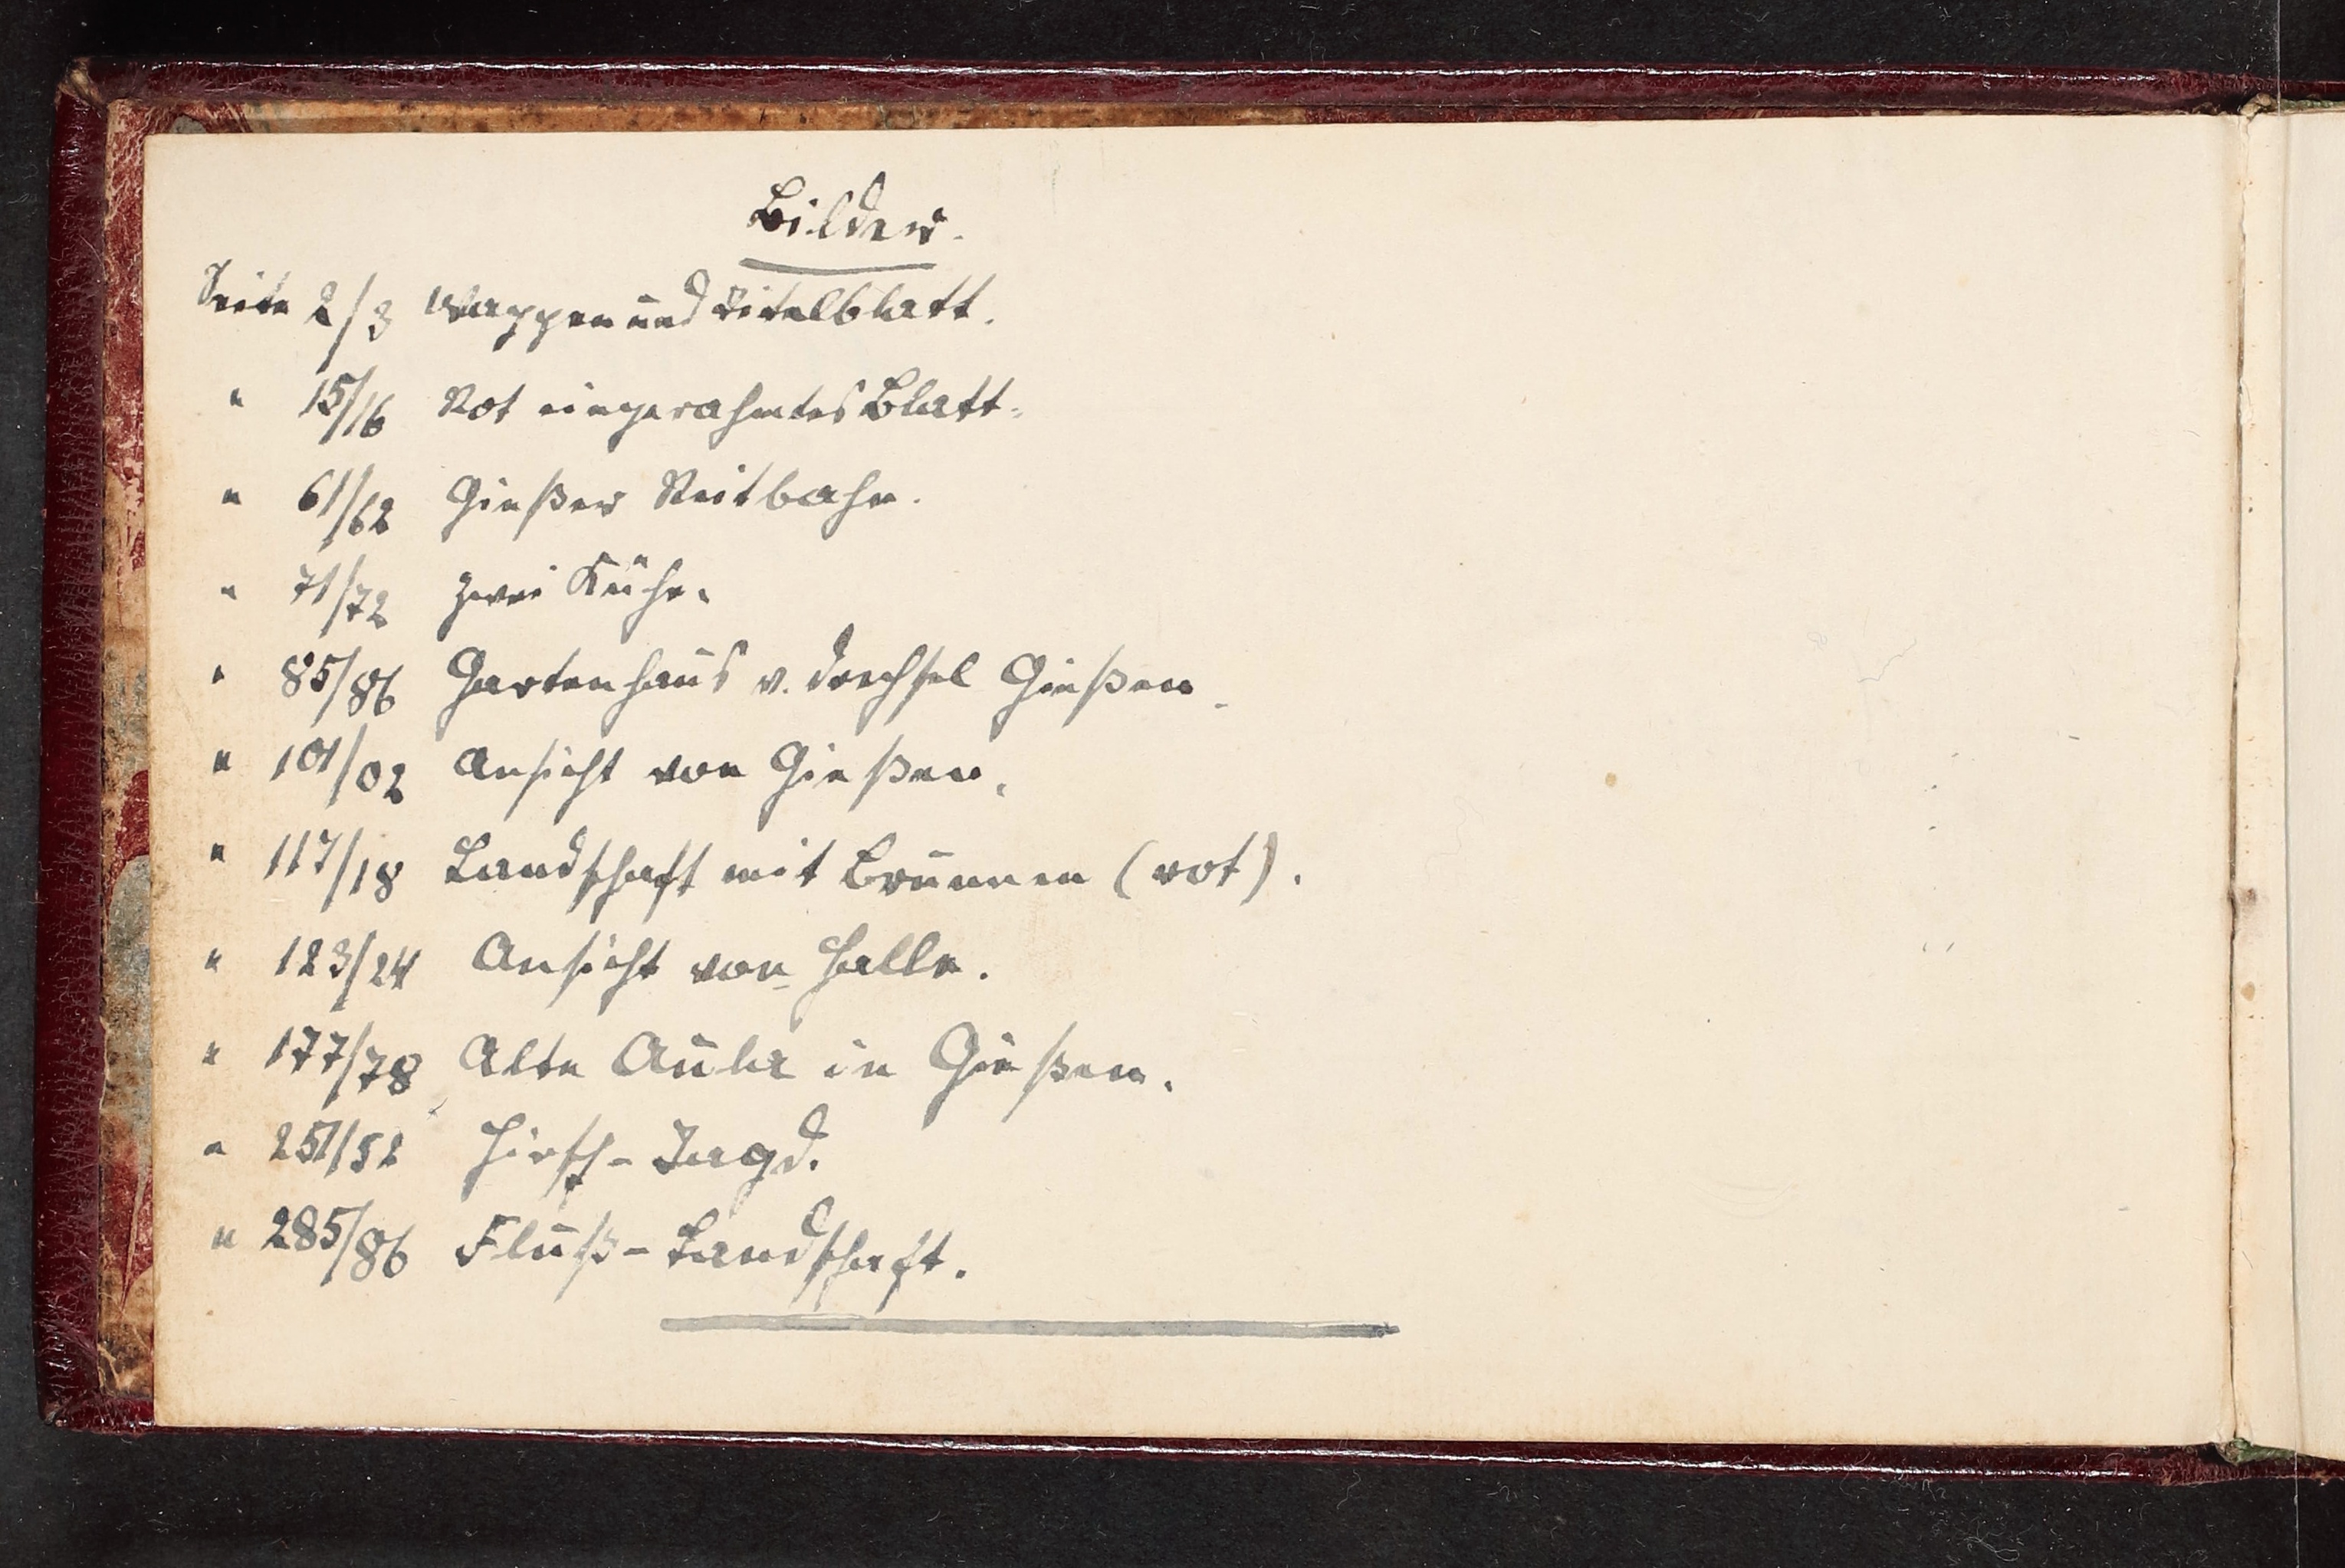 Bilder.
Seite 2/3 Wappen und Titelblatt.
" 15/16 Rot eingerahmtes Blatt.
" 61/62 Gießer Reitbahn.
" 71/72 Zwei Kühe.
" 85/86 Gartenhaus v. Drechsel Gießen.
" 101/02 Ansicht von Gießen.
" 117/18 Landschaft mit Brunnen (rot).
" 123/24 Ansicht von Halle.
" 177/78 Alte Aula in Gießen.
" 251/52 Hirsch-Jagd.
" 285/86 Fluß-Landschaft.